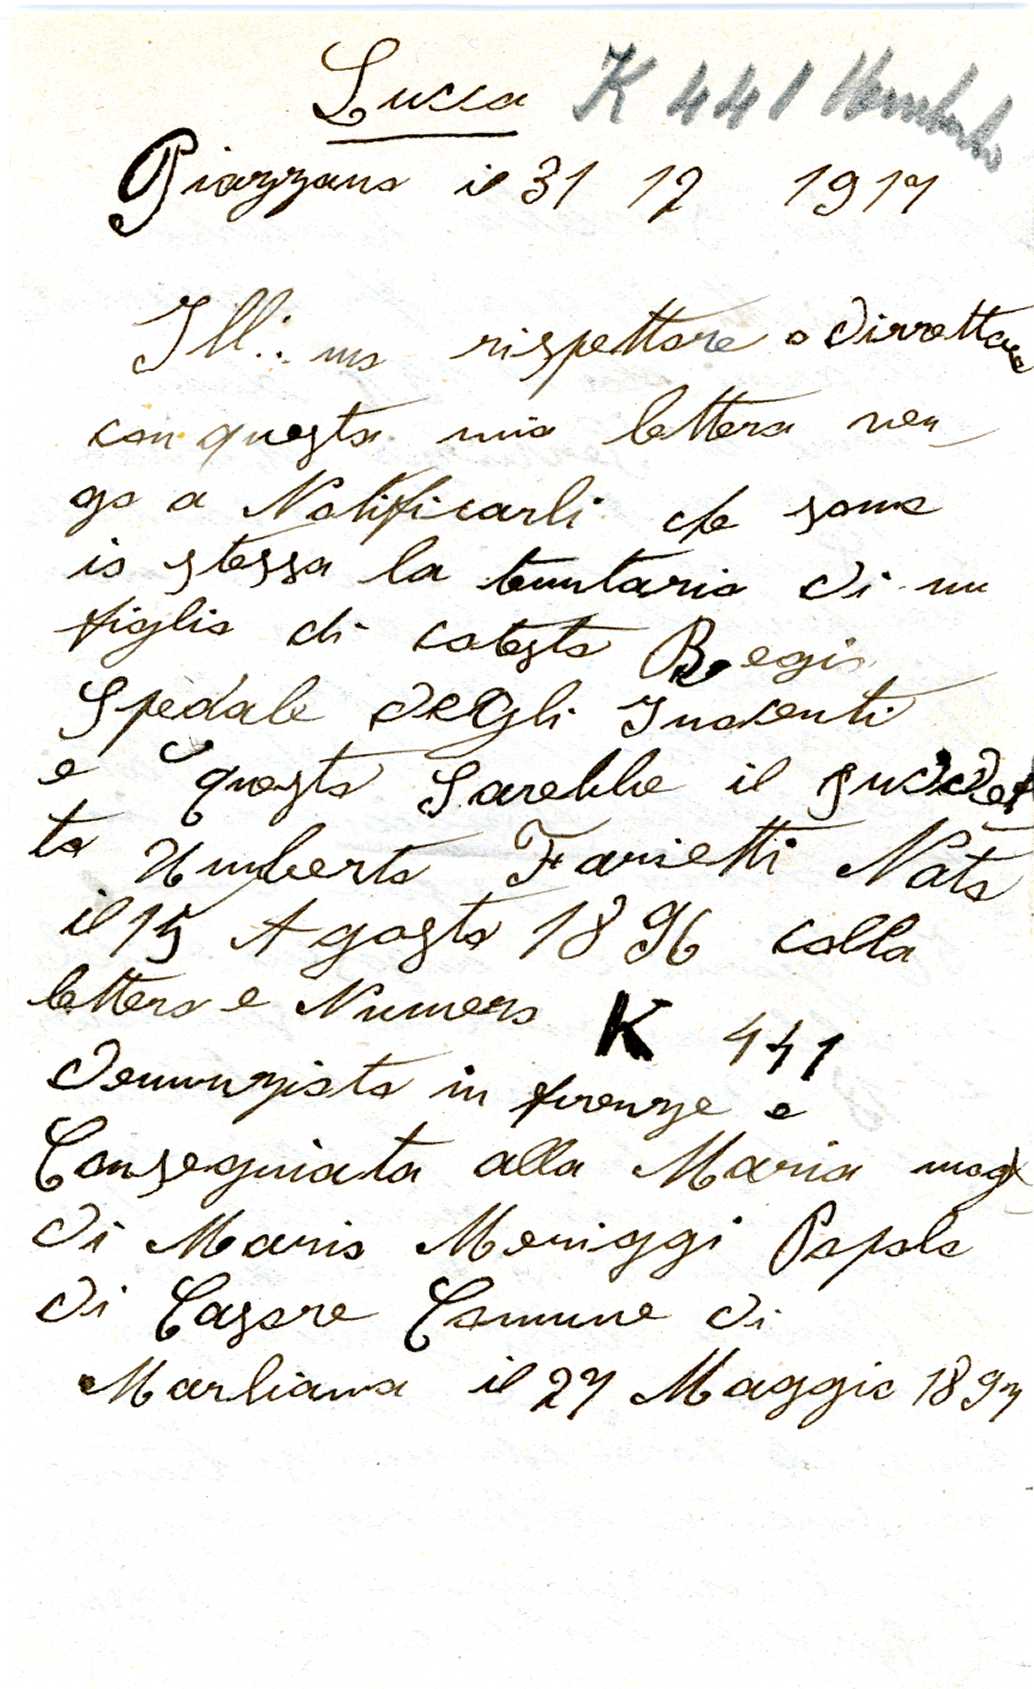 Lucca K 441 Umberto
Piazzano il 31 12 1917
Ill:. mo rispettore o dirrettore
con questa mia lettera ven
go a Notificarli che sono
io stessa la tenutaria di un
figlio di cotesto Regio
Spedale degli Inocenti
e questo Sarebbe il suddet
to Umberto Farietti Nato
il 15 Agosto 1896 colla
lettera e Numero K 441
denunziato in firenze e
Conseguiata alla Maria mog
di Mario Moriggi Popolo
di Casore Comune di
Marliana il 27 Maggio 1897